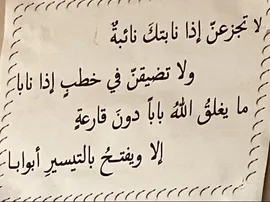 لا تجزعنّ إذا نابتكَ نائبةٌ
ولا تضيقنّ في خطبٍ إذا نابا
ما يغلقُ اللهُ باباً دونَ قارعةٍ
إلا ويفتحُ بالتيسيرِ أبوابا